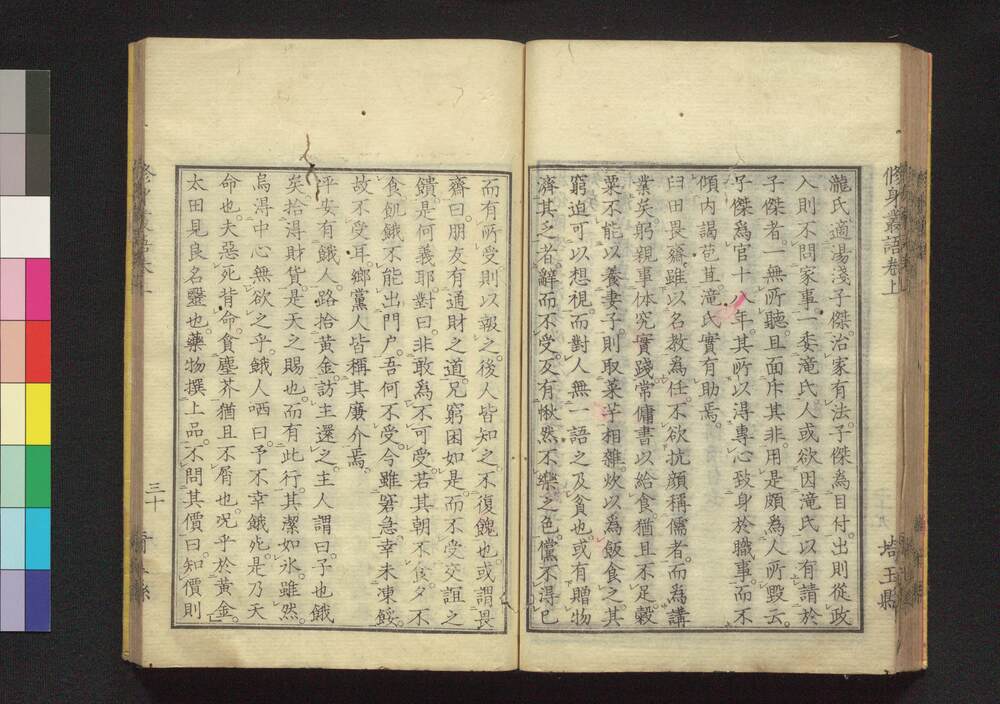 修身叢語卷上
埼玉縣
瀧氏適湯淺子傑。治家有法。子傑為目付。出則從政
入則不問家事。一委滝氏。人或欲因滝氏以有請於
子傑者。一無所聽。且面斥其非。用是頗為人所毀云。
子傑為官十八年。其所以淂專心致身於職事。而不
傾内謁苞苴。滝氏實有助焉。
臼田畏齋。雖以名教為任。不欲抗顔稱儒者。而為講
業矣。躬親事体究實踐。常傭書以給食。猶且不足。穀
粟不能以養妻子。則取菜芋相雜。炊以為飯食之。其
窮迫可以想視。而對人無一語之及貧也。或有贈物
濟其乏者。辭而不受。友有愀然不樂之色。儻不淂已
而有所受。則以報之。後人皆知之。不復餽也。或謂畏
齋曰。朋友有通財之道。兄窮困如是。而不受交誼之
饋。是何義耶。對曰。非敢為不可受。若其朝不食。夕不
食。飢餓不能出門戶。吾何不受。今雖窘急。幸未凍餒。
故不受耳。鄉黨人皆稱其廉介焉。
坪安有餓人。路拾黄金。訪主還之。主人謂曰。子也餓
矣。拾淂財貨。是天之賜也。而有此行。其潔如氷。雖然
烏淂中心無欲之乎。餓人哂曰。予不幸餓死。是乃天
命也。夫惡死背命。貪塵芥猶且不屑也。况乎於黄金。
太田見良名毉也。藥物撰上品。不問其價。曰。知價則
三十